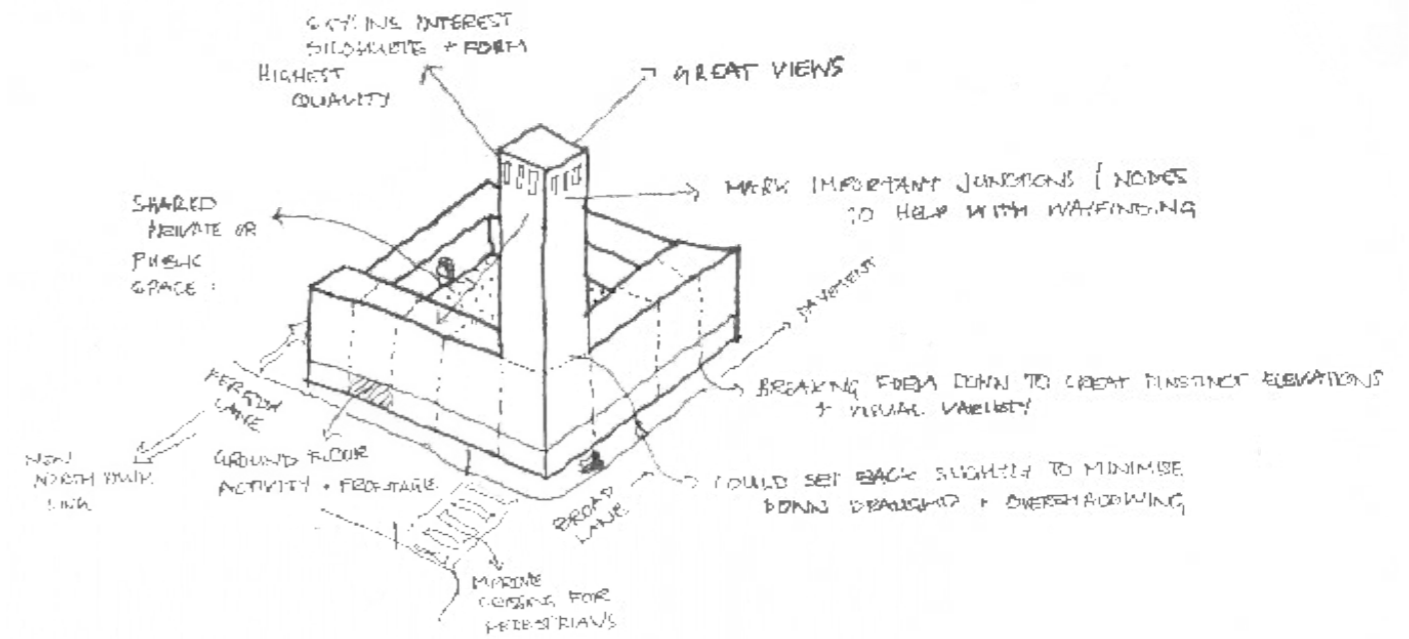 SKYLINE INTEREST
SILOHUETE + FORM
HIGHEST
QUALITY
GREAT VIEWS
MARK IMPORTANT JUNCTIONS / NODES
TO HELP WITH WAYFINDING
SHARED
PRIVATE OR
PUBLIC
SPACE
PAVEMENT
BREAKING FORM DOWN TO CREAT DINSTINCT ELEVATIONS
+ VISUAL VARIETY
LANE
GROUND FLOOR
ACTIVITY + FRONTAGE
NEW
NORTH
LINK
COULD SET BACK SLIGHTLY TO MINIMISE
DOWN + OVERSHADOWING
BROAD
LANE
FOR
PEDESTRIANS